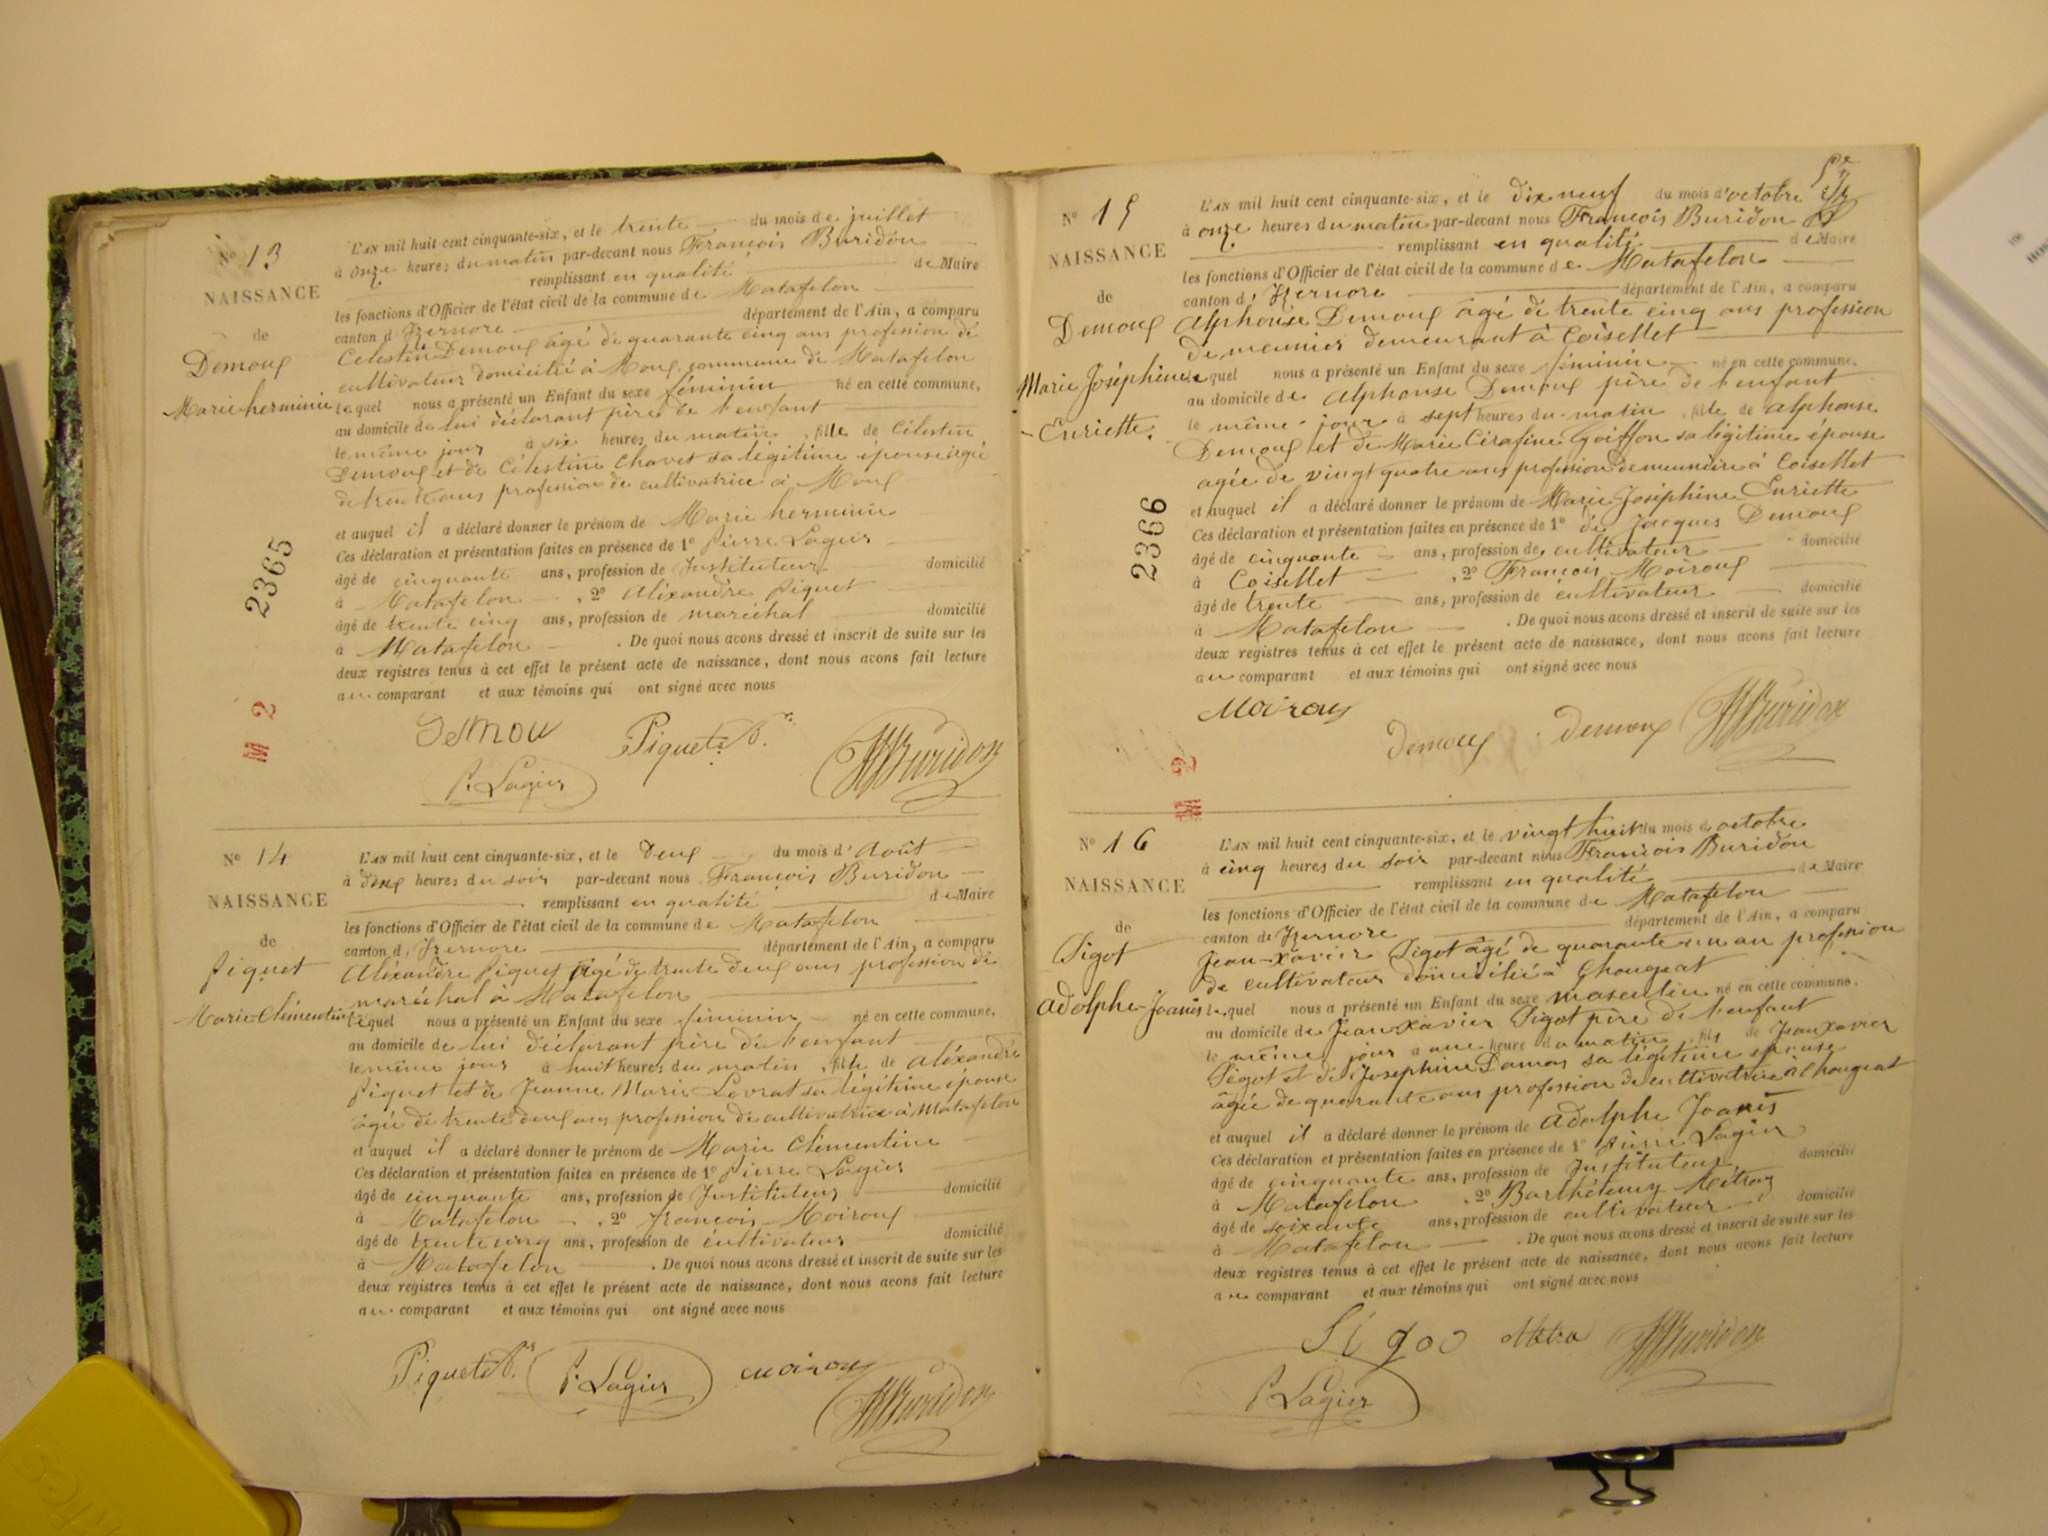 N° 13
NAISSANCE
de
Demoux
Marie herminie
2365
M 2
L'AN mil huit cent cinquante-six, et le trente du mois de juillet
à onze heures du matin par-devant nous François Buridon
remplissant en qualité de Maire
les fonctions d'Officier de l'état civil de la commune de Matafelon
canton d'Izernore département de l'Ain, a comparu
Célestin Demoux âgé de quarante cinq ans profession de
cultivateur domicilié à Moux commune de Matafelon
lequel nous a présenté un Enfant du sexe féminin né en cette commune,
au domicile de lui déclarant père de l'enfant
le même jour à six heures du matin, fille de Célestin
Demoux et de Célestine Chavet sa légitime épouse âgée
de trente ans profession de cultivatrice à Moux
et auquel il a déclaré donner le prénom de Marie herminie
Ces déclaration et présentation faites en présence de 1° Pierre Lagier
âgé de cinquante ans, profession de Instituteur domicilié
à Matafelon, 2° Aléxandre Piquet
âgé de trente cinq ans, profession de maréchal domicilié
à Matafelon. De quoi nous avons dressé et inscrit de suite sur les
deux registres tenus à cet effet le présent acte de naissance, dont nous avons fait lecture
au comparant et aux témoins qui ont signé avec nous
Demou Piquet Buridon
P. Lagier
N° 14
NAISSANCE
de
Piquet
Marie-Clémentine
L'AN mil huit cent cinquante-six, et le Deux du mois d'Août
à deux heures du soir par-devant nous François Buridon
remplissant en qualité de Maire
les fonctions d'Officier de l'état civil de la commune de Matafelon
canton d'Izernore département de l'Ain, a comparu
Aléxandre Piquet âgé de trente deux ans profession de
maréchal à Matafelon
lequel nous a présenté un Enfant du sexe féminin né en cette commune,
au domicile de lui déclarant père de l'enfant
le même jour à huit heures du matin, fille de Aléxandre
Piquet et de Jeanne Marie Levrat sa légitime épouse
âgée de trente deux ans profession de cultivatrice à Matafelon
et auquel il a déclaré donner le prénom de Marie Clémentine
Ces déclaration et présentation faites en présence de 1° Pierre Lagier
âgé de cinquante ans, profession de Instituteur domicilié
à Matafelon, 2° François Moiroux
âgé de trente cinq ans, profession de cultivateur domicilié
à Matafelon. De quoi nous avons dressé et inscrit de suite sur les
deux registres tenus à cet effet le présent acte de naissance, dont nous avons fait lecture
au comparant et aux témoins qui ont signé avec nous
Piquet P. Lagier Moiroux
Buridon
N° 15
NAISSANCE
de
Demoux
Marie Joséphine
Enriette.
2366
M 2
L'AN mil huit cent cinquante-six, et le dix neuf du mois d'octobre
à onze heures du matin par-devant nous François Buridon
remplissant en qualité de Maire
les fonctions d'Officier de l'état civil de la commune de Matafelon
canton d'Izernore département de l'Ain, a comparu
Alphonse Demoux âgé de trente cinq ans profession
de meunier demeurant à Coisellet
lequel nous a présenté un Enfant du sexe féminin né en cette commune.
au domicile de Alphonse Demoux père de l'enfant
le même jour à sept heures du matin, fille de Alphonse
Demoux et de Marie Cérafine Goiffon sa légitime épouse
âgée de vingt quatre ans profession de meunière à Coisellet
et auquel il a déclaré donner le prénom de Marie Joséphine Enriette
Ces déclaration et présentation faites en présence de 1° de Jacques Demoux
âgé de cinquante ans, profession de cultivateur domicilié
à Coisellet, 2° François Moiroux
âgé de trente ans, profession de cultivateur domicilié
à Matafelon. De quoi nous avons dressé et inscrit de suite sur les
deux registres tenus à cet effet le présent acte de naissance, dont nous avons fait lecture
au comparant et aux témoins qui ont signé avec nous
Moiroux
Demoux Demoux Buridon
N° 16
NAISSANCE
de
Sigot
Adolphe-Joanis
L'AN mil huit cent cinquante-six, et le vingt huit du mois d'octobre
à cinq heures du soir par-devant nous François Buridon
remplissant en qualité de Maire
les fonctions d'Officier de l'état civil de la commune de Matafelon
canton de Izernore département de l'Ain, a comparu
Jean-Xavier Sigot âgé de quarante un an profession
de cultivateur domicilié à Chougeat
lequel nous a présenté un Enfant du sexe masculin né en cette commune.
au domicile de Jean Xavier Sigot père de l'enfant
le même jour à une heure du matin, fils de Jean Xavier
Sigot et de Josephine Damas sa légitime épouse
âgée de quarante ans profession de cultivatrice à Chougeat
et auquel il a déclaré donner le prénom de Adolphe Joanis
Ces déclaration et présentation faites en présence de 1° Pierre Lagier
âgé de cinquante ans, profession de Instituteur domicilié
à Matafelon, 2° Barthélemy Métraz
âgé de soixante ans, profession de cultivateur domicilié
à Matafelon. De quoi nous avons dressé et inscrit de suite sur les
deux registres tenus à cet effet le présent acte de naissance, dont nous avons fait lecture
au comparant et aux témoins qui ont signé avec nous
Sigod Métra Buridon
P. Lagier